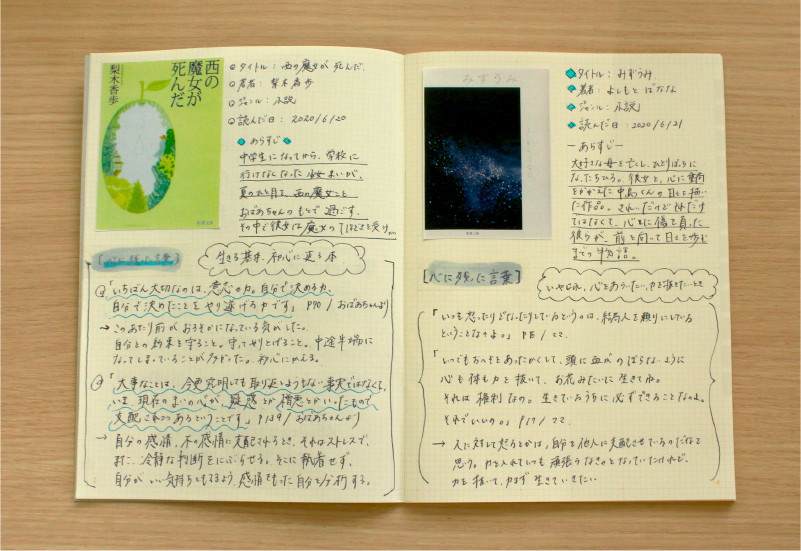 西の
魔女が
死んだ
梨木香歩
タイトル：西の魔女が死んだ
著者：梨木香歩
ジャンル：小説
読んだ日：2020/6/20
あらすじ
中学生になってから、学校に
行けなくなった少女まいが、
夏のひと月を、西の魔女こと
おばあちゃんのもとで過ごす。
その中で彼女は魔女の手ほどきを受け
[心に残った言葉]
生きる基本、初心に返る本
①「いちばん大切なのは、意志の力。自分で決める力、
自分で決めたことをやり遂げる力です」P70/おばあちゃんより
→このあたり前がおろそかになっている気がした。
自分との約束を守ること。守ってやりとげること。中途半端に
なってしまっていることが多かった。初心にかえる。
②「大事なことは、今更究明しても取り返しようもない事実ではなくて、
いま、現在のまいの心が、疑惑とか憎悪とかいったもので
支配されつつあるということです」P139/おばあちゃんより
→自分の感情、不の感情に支配されるとき、それはストレスで、
また、冷静な判断をにぶらせる。そこに執着せず、
自分がいい気持ちもてるよう、感情をもった自分を分析する。
みずうみ
タイトル：みずうみ
著者：よしもとばなな
ジャンル：小説
読んだ日：2020/6/21
ーあらすじー
大好きな母を亡くし、ひとりぼっちに
なったちひろ。彼女と、心に傷
をかかえた中島くんの日々を描い
た作品。きれいだけどそれだけ
ではなくて、心などに傷を負った
彼らが、前を向いて日々を歩む
までの物語。
[心に残った言葉]
いやされ、心をあらいたい、力を抜きたいとき
「いつも怒ったりどなったりしている人というのは、結局人を頼りにしている
ということなのよ。」P8/ママ
「いつでもおへそをあったかくして、頭に血がのぼらないように
心も体も力を抜いて、お花みたいに生きてね。
それは権利なの。生きているうちに必ずできることなのよ。
それでいいの。」P17/ママ
→人に対して怒るとかは、自分を他人に支配させているのだなって
思う。力を入れていつも頑張らなきゃとなっていたけれど、
力を抜いて、力まず生きていきたい